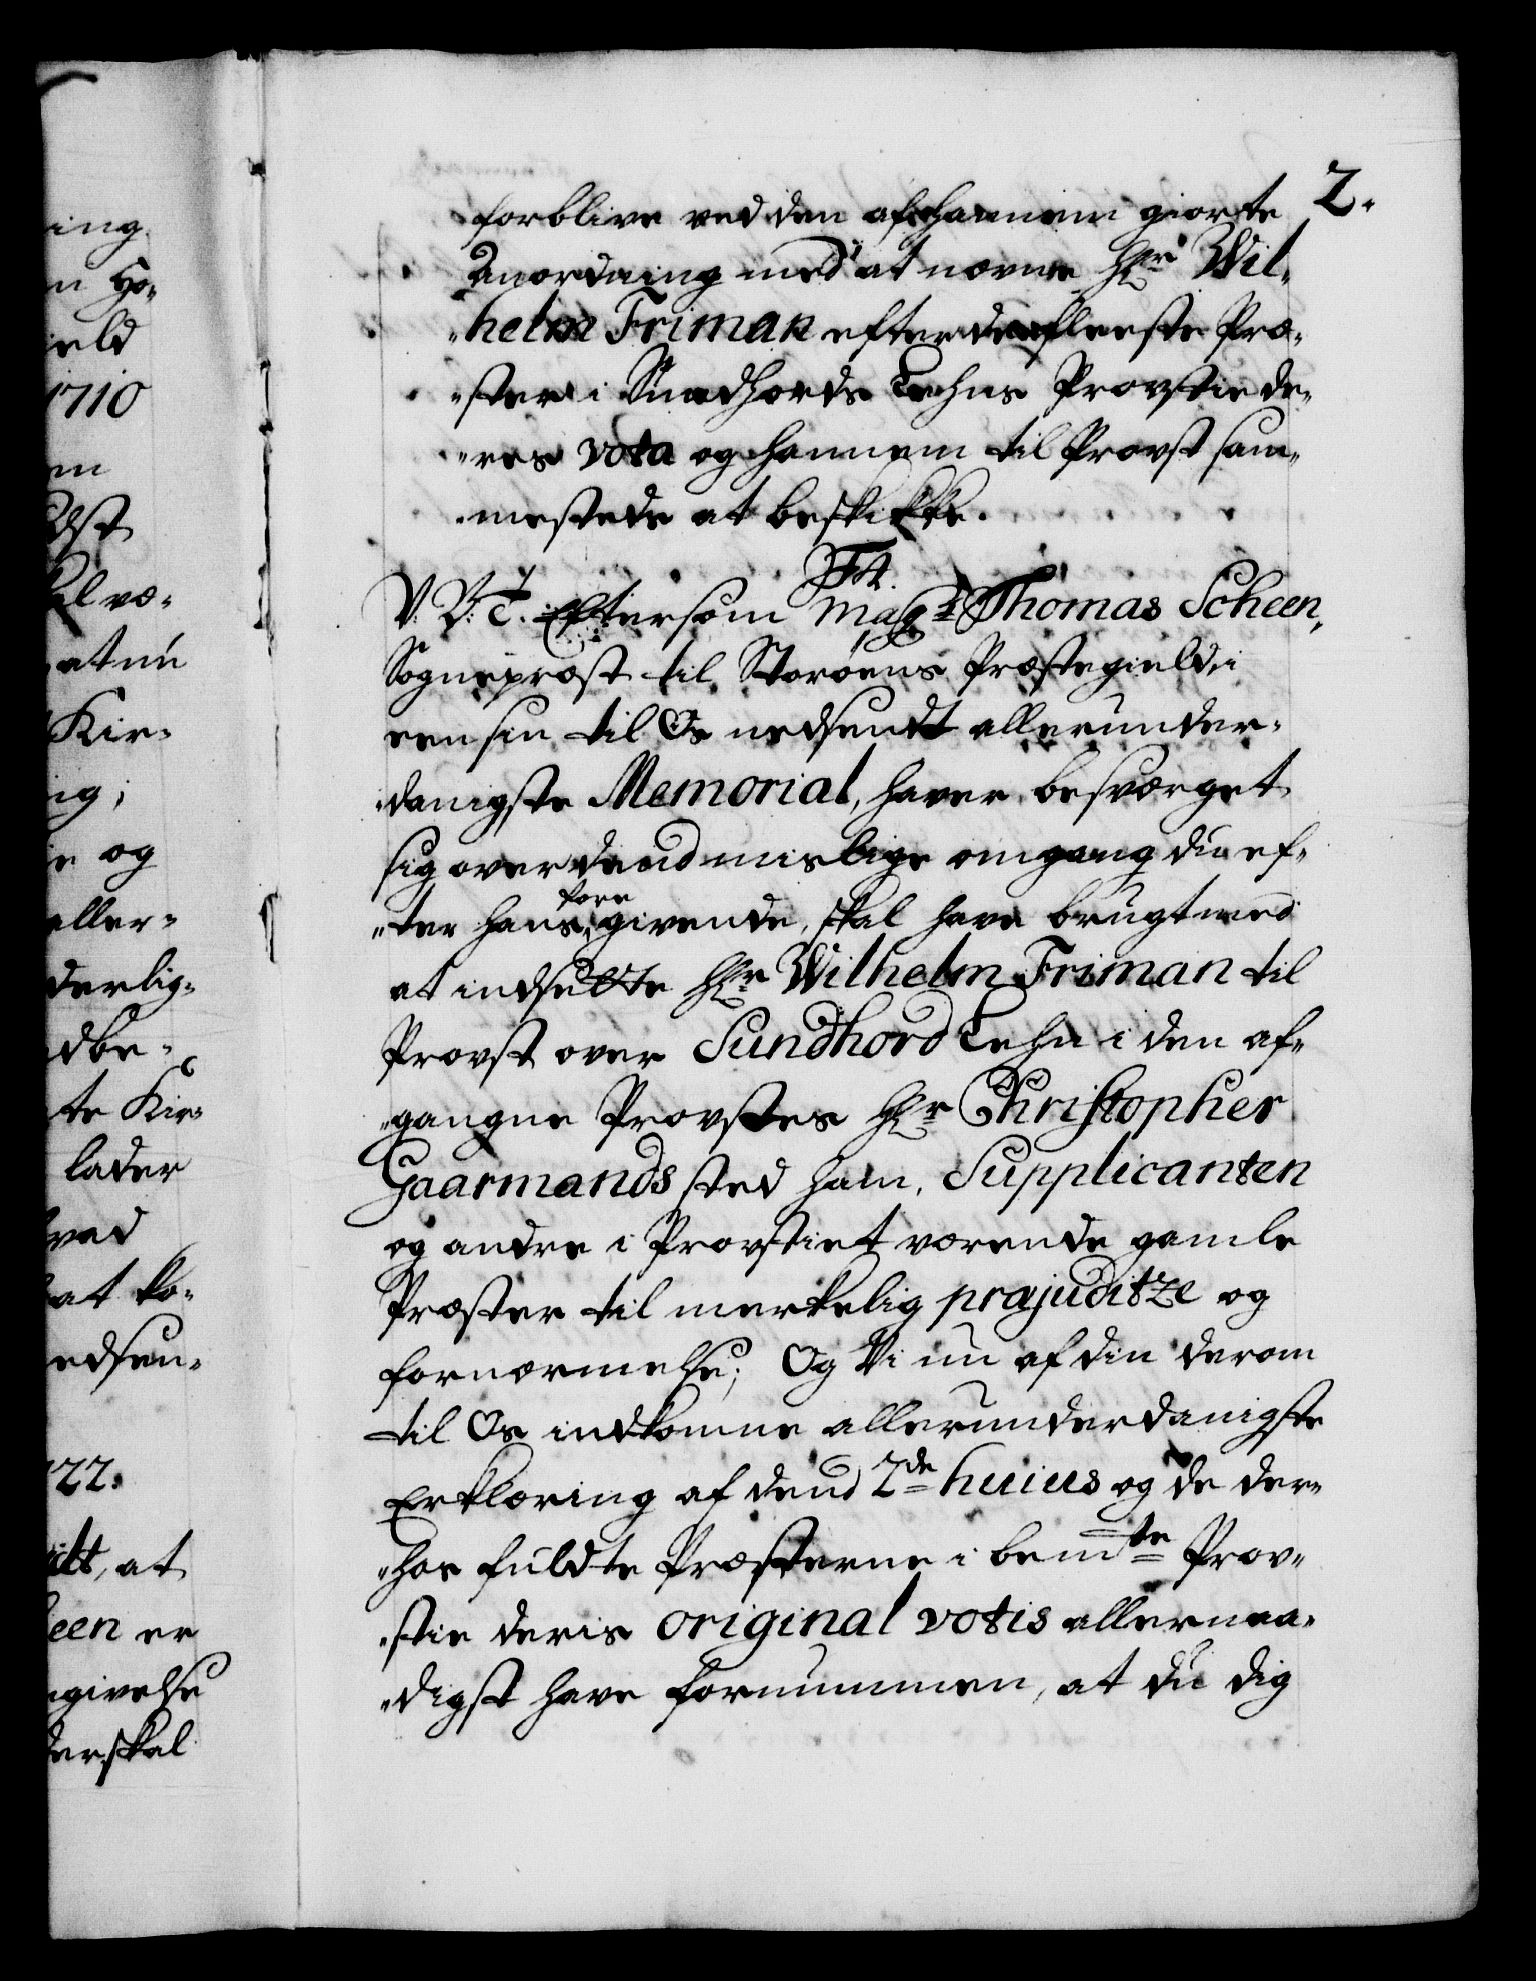 2.
forblive ved den af hannem giorte
Anordning med at nævne Hr Wil-
"helm Friman efter de fleeste Præ-
"ster i Sundhords Lehns Provstie de-
"res vota og hannem til Provst sam-
mestede at beskikke.
F4.
V. V. T. Eftersom Magr Thomas Scheen,
Sogneprest til Storøens Præstegield, i
een sin til Os nedsendt allerunder-
danigste Memorial, haver besværget
sig over dend mislige omgang du ef-
"ter hans fore
givende, skal have brugt med
at indsætte Hr Wilhelm Friman til
Provst over Sundhord Lehn i den af-
"gangne Provstes Hr Christopher
Gaarmands sted ham, Supplicanten
og andre i Provstiet værende gamle
Præster til merkelig præjuditze og
fornærmelse; Og Vi nu af din derom
til Os indkomne allerunderdanigste
Erklæring af dend 2de huius og de der-
"hos fuldte Præsterne i bemte Prov-
"stie deris original votis allernaa-
"digst have fornummen, at du dig
ing
n Ho-
ield
1710
en
dst
al væ-
at nu
Kir-
ng,
e og
aller-
derlig-
dbe-
te Kir-
lader
ved
at ko-
edsen-
722.
ilt, at
een er
givelse
der skal